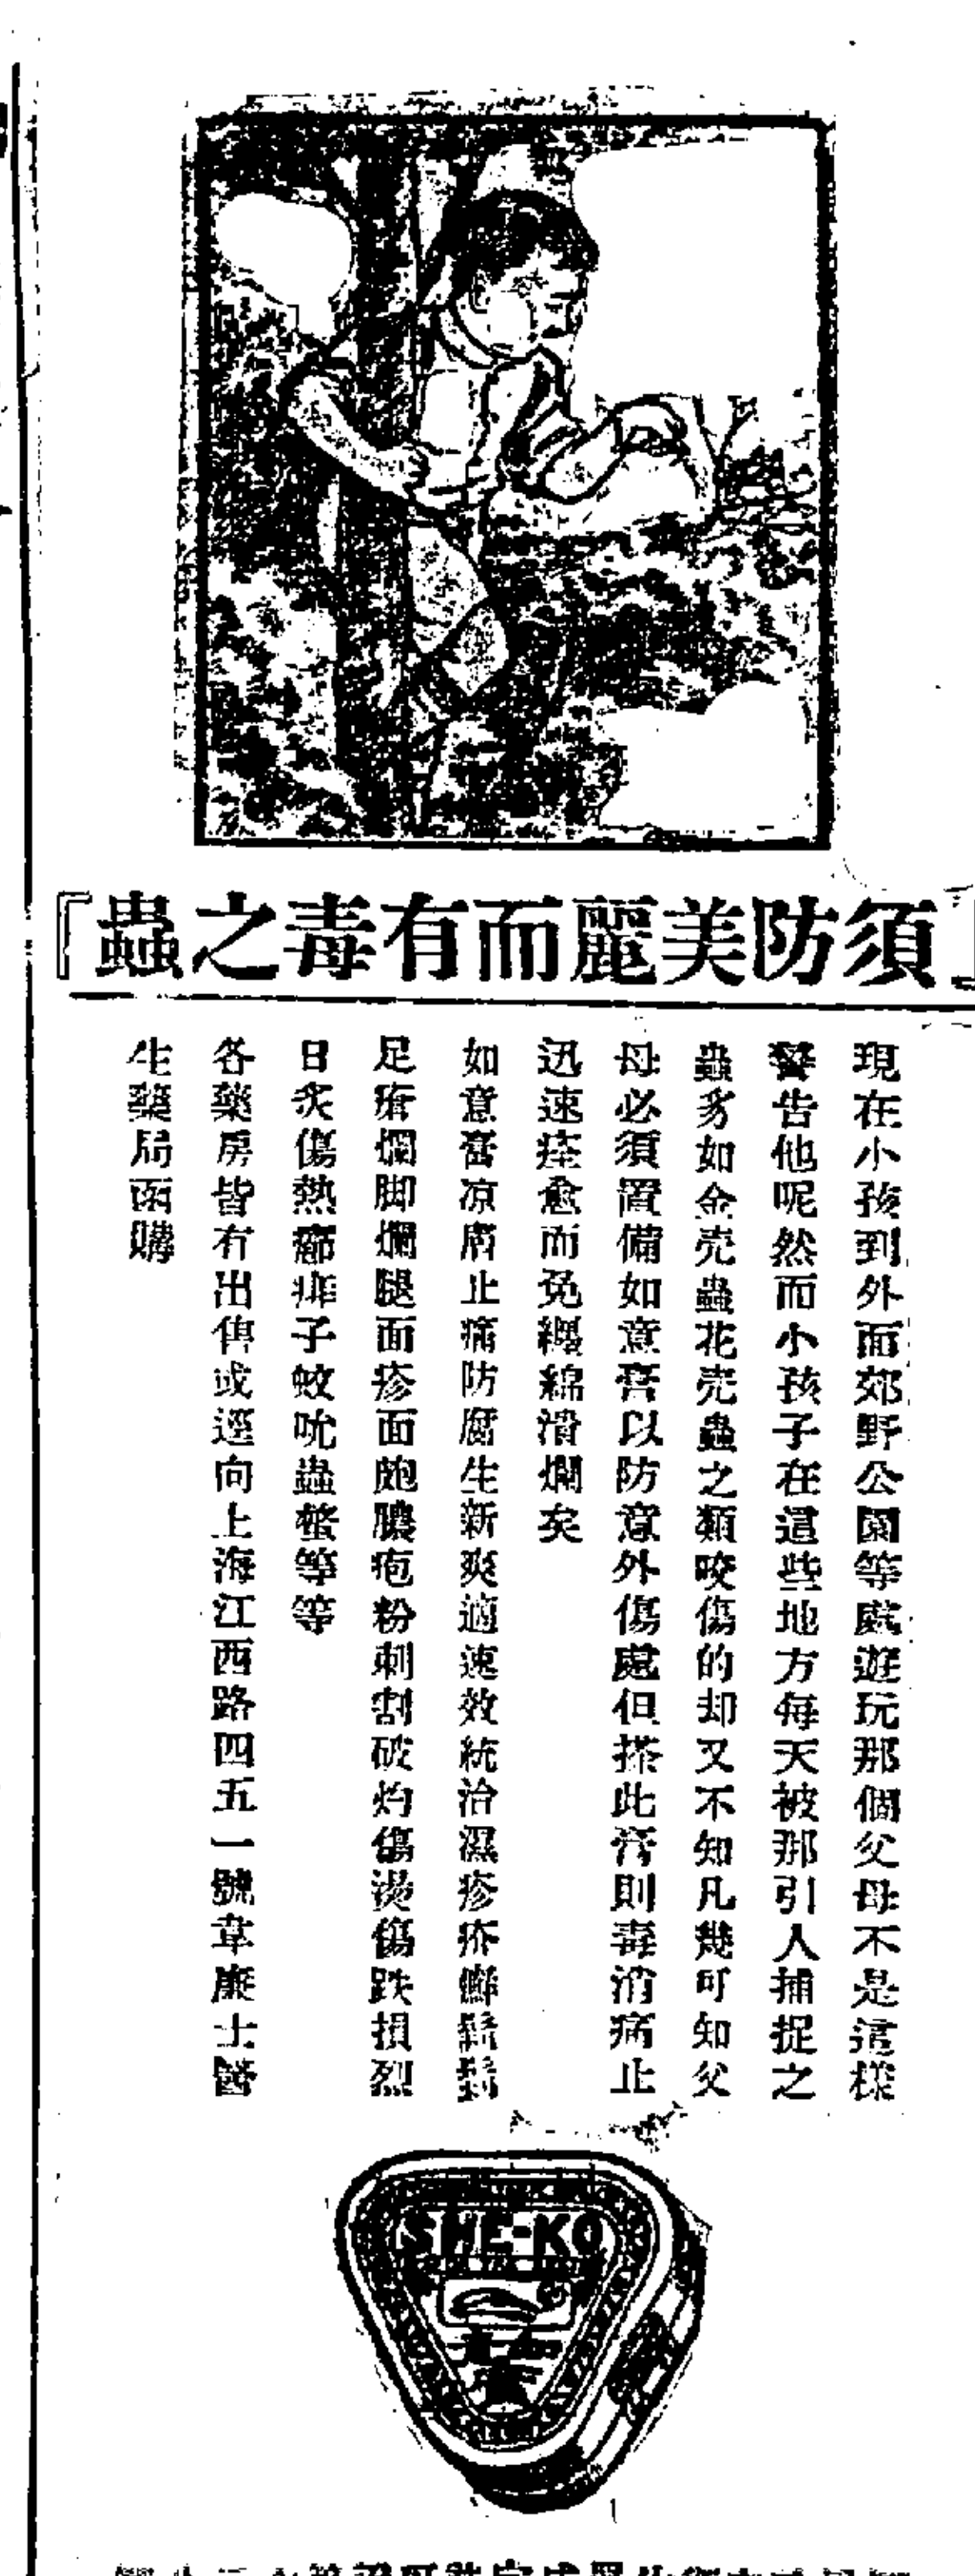 「須防美麗而有毒之蟲」
現在小孩到外面郊野公園等處遊玩那個父母不是這樣
警告他呢然而小孩子在這些地方每天被那引人捕捉之
蟲豸如金壳蟲花壳蟲之類咬傷的却又不知凡幾可知父
母必須置備如意膏以防意外傷處但搽此膏則毒消痛止
迅速痊愈而免纏綿潰爛矣
如意膏凉膚止痛防腐生新爽適速效統治濕疹疥癬
足瘡爛脚爛腿面疹面皰膿疱粉刺割破灼傷燙傷跌損烈
日炙傷熱癤痱子蚊吮蟲螫等等
各藥房皆有出售或逕向上海江西路四五一號韋廉士醫
生藥局函購
SHE-KO
如意
膏